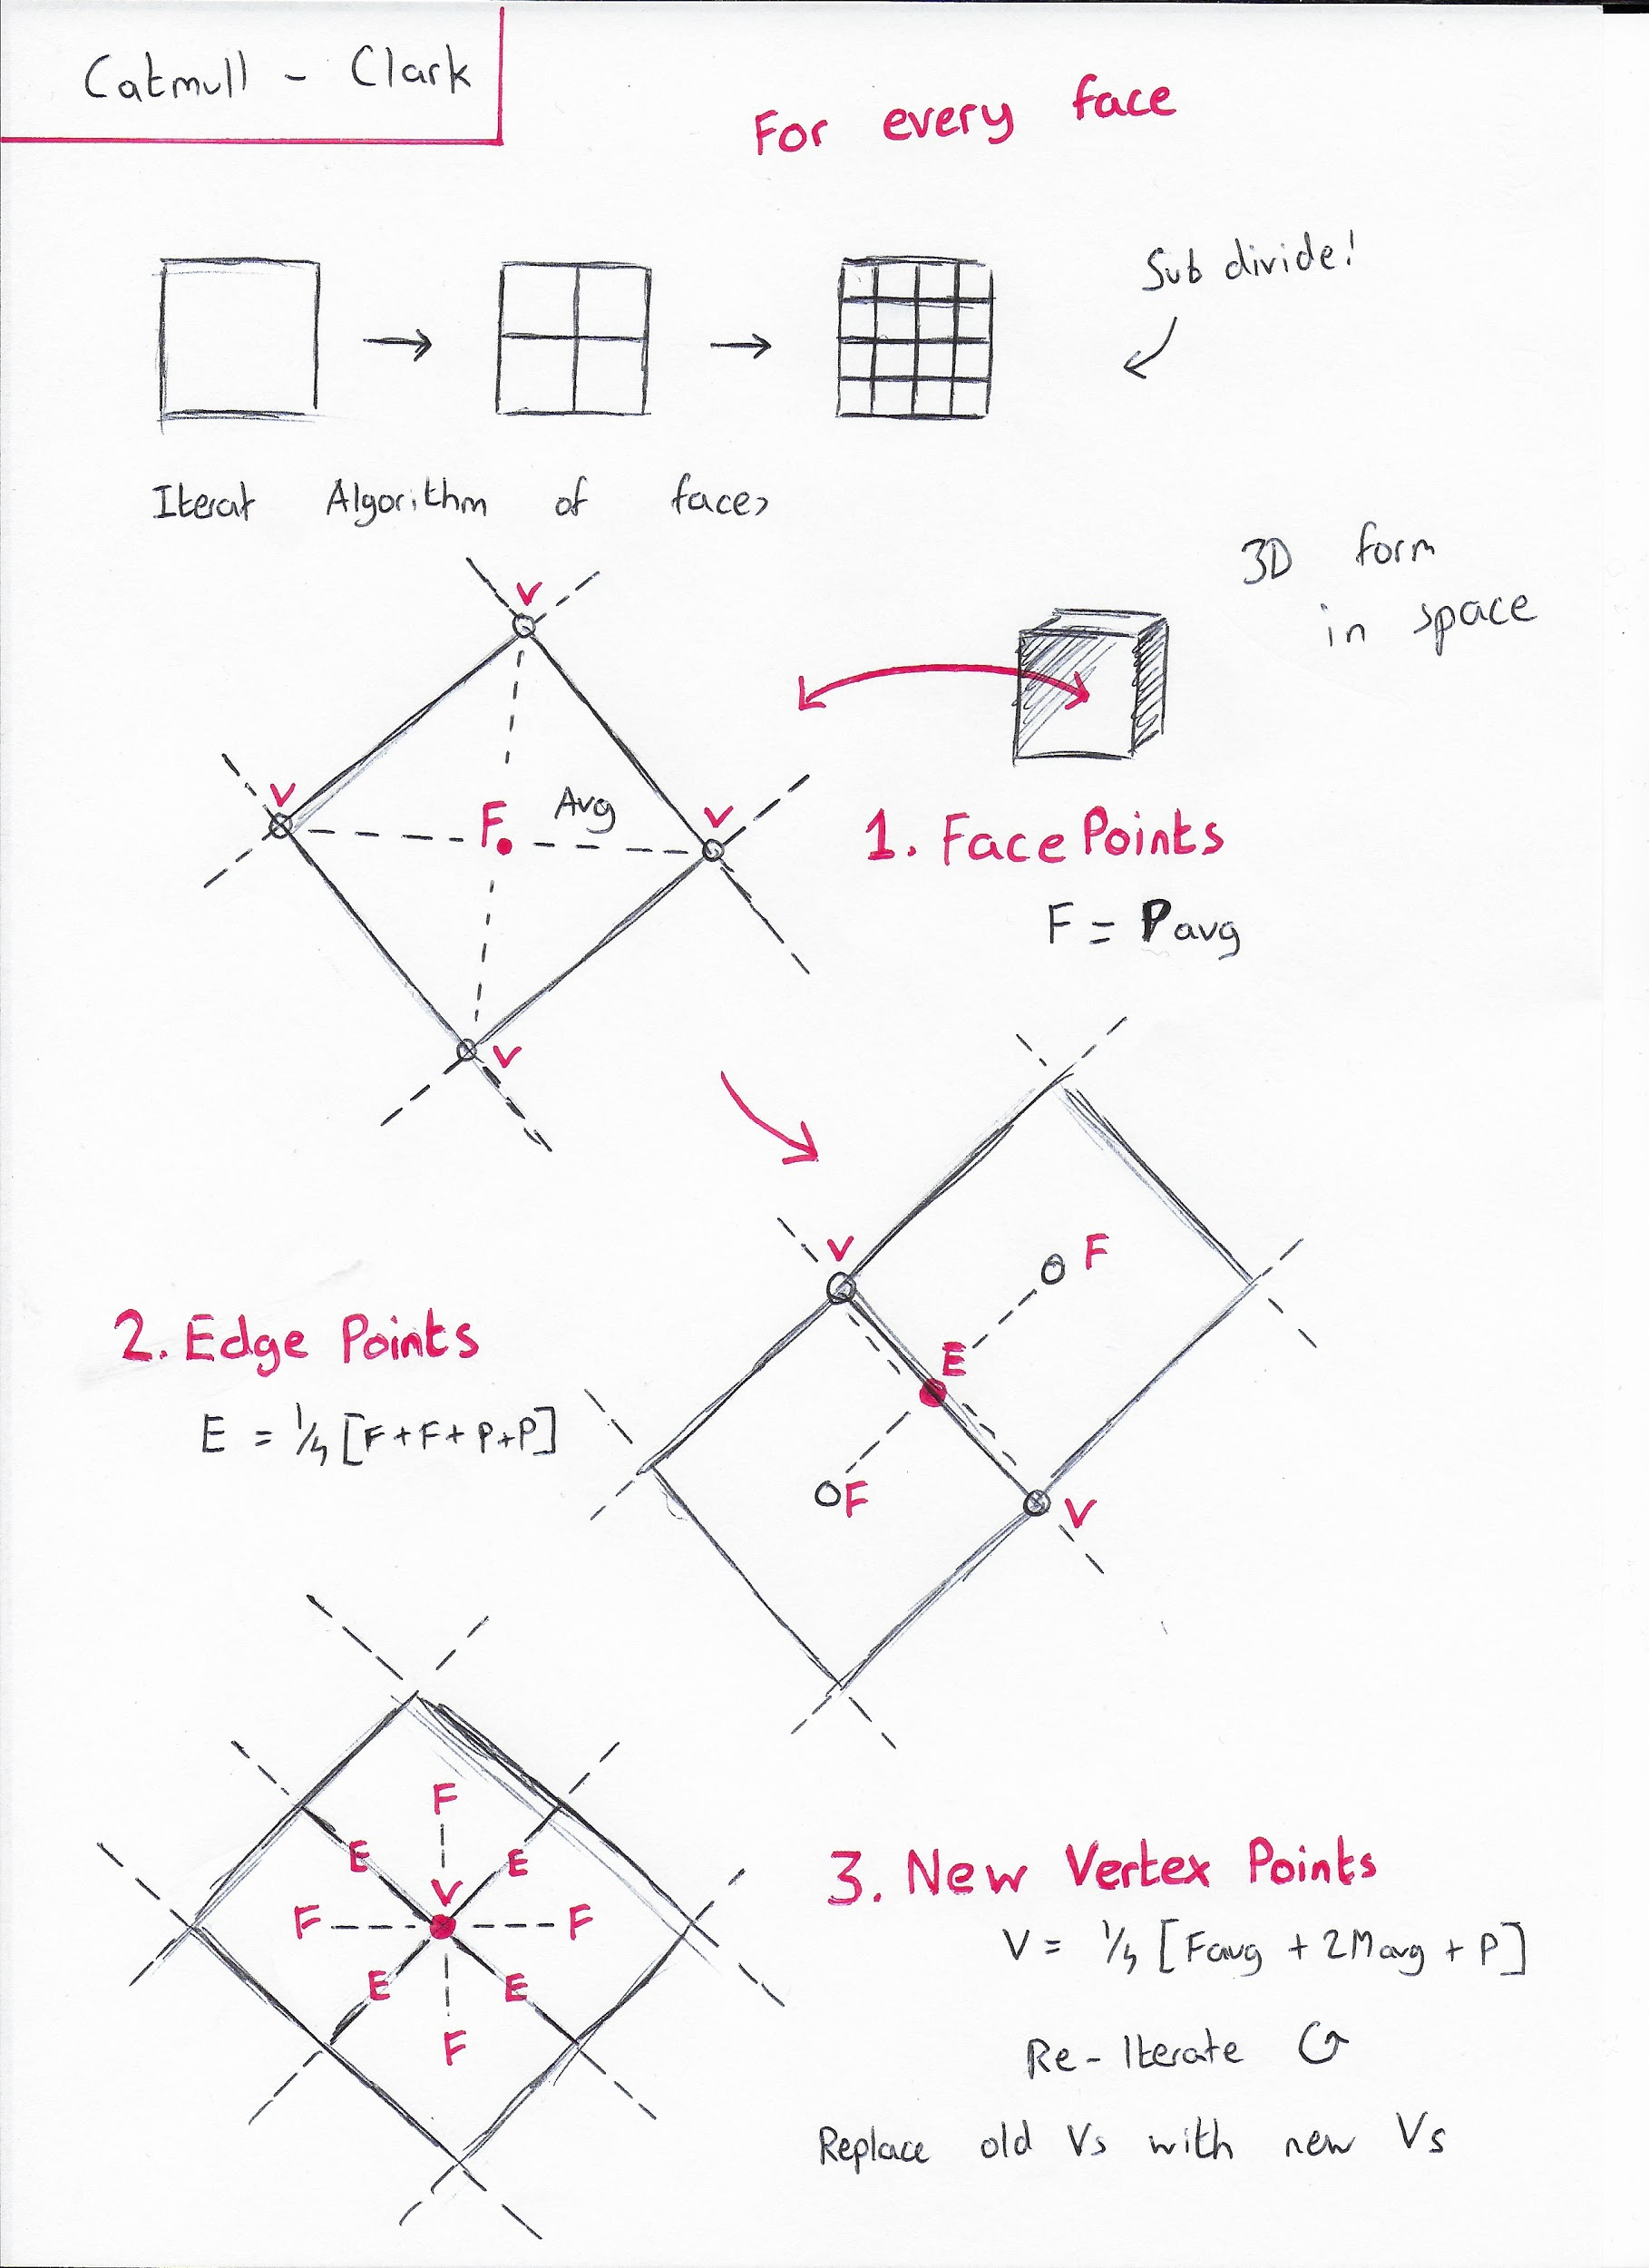 Catmull - Clark
For every face
Sub divide!
Iterat Algorithm of faces
3D form
in space
V
V
F
Avg
V
V
1. Face Points
F = Pavg
V
F
E
F
V
2. Edge Points
E = 1/4 [F+F+P+P]
F
E
E
V
F
F
E
E
F
3. New Vertex Points
V = 1/4 [Favg + 2Mavg + P]
Re-Iterate
Replace old Vs with new Vs